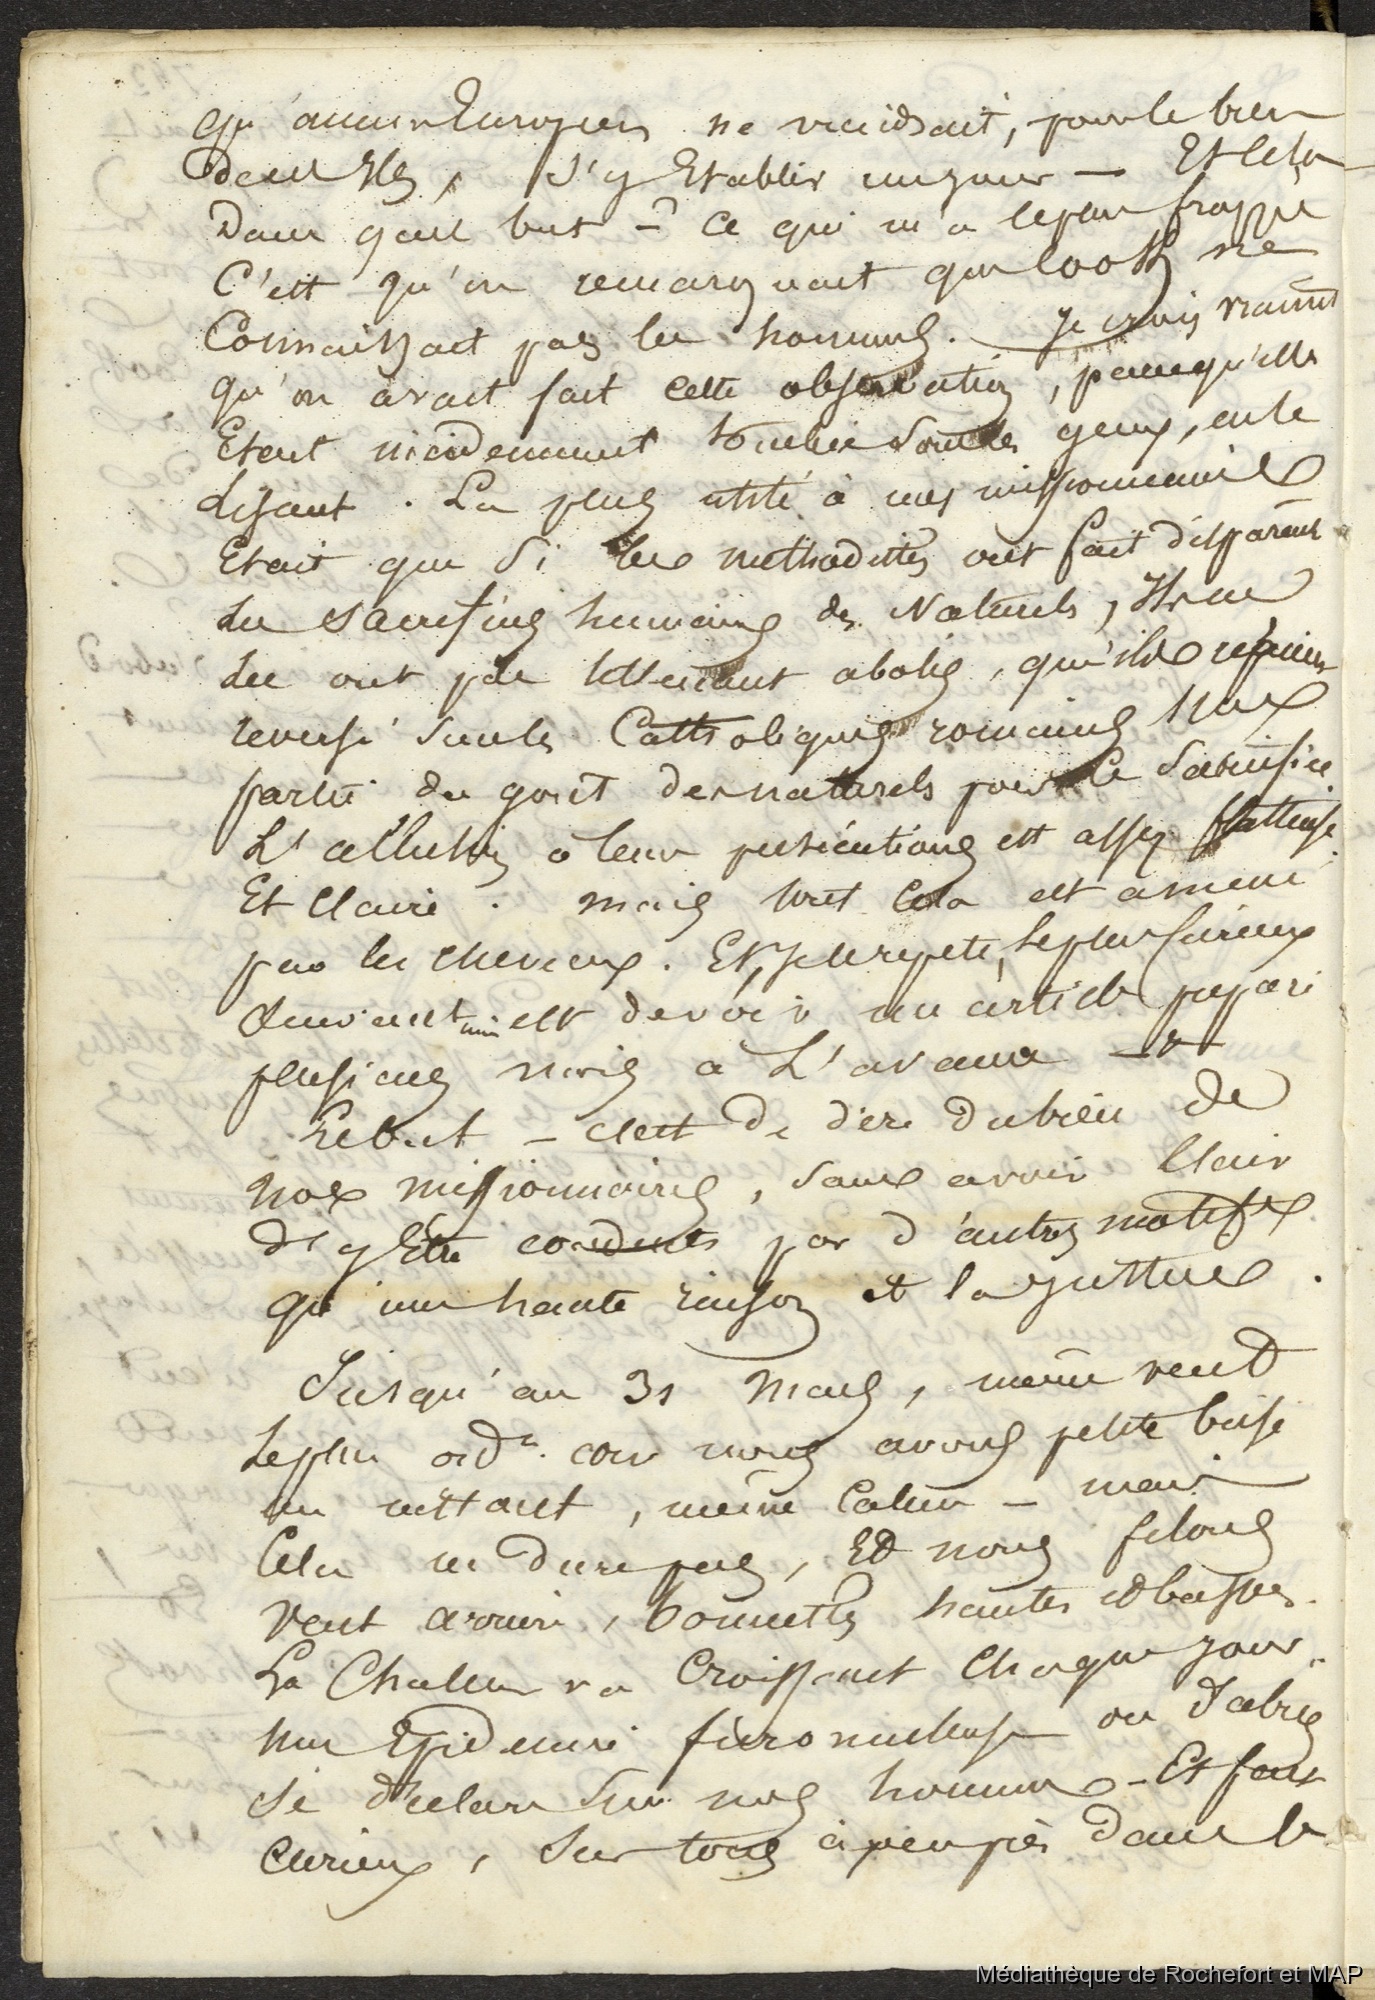 qu'aucun Européen ne viendrait, pour le bien
de ces Isles, s'y Etablir un jour — Et cela
Dans quel but — ? Ce qui m'a le plus frappé
C'est qu'on remarquait que Cook ne
Connaissait pas les hommes. Je crois vraiment
qu'on avait fait cette observation, parcequ'elle
Etait incidemment tombée sous les yeux, en le
disant. La plus utile à nos missionnaires
Etait que Si les methodistes ont fait disparaitre
Les sacrifices humains des Naturels, Ils ne
Les ont pas tellement abolis, qu'ils
reversé sur les Catholiques romains une
partie du gout des naturels pour le Sacrifice
L'allusion à leurs persécutions est assez flatteuse
Et Claire. mais tout cela est amené
par les cheveux. Et, Je le repete, le plus curieux
est de voir un article préparé
plusieurs mois à L'avance —
Le but — c'est de dire du bien de
nos missionnaires, sans avoir l'air
d'y Etre conduits par d'autres motifs
qu'une haute raison et la Justice.
Jusqu'au 31 Mars, même vent
Le plus ord.re car nous avons petite brise
un instant, même calme — mais
Cela ne dure pas, Et nous filons
vent arriere, bonnettes hautes et basses.
La Chaleur va Croissant Chaque jour.
une Epidemie furonculeuse ou d'abcès
Se declare Sur nos hommes — Et fait
curieux, Sur tous à peu près dans le
Médiathèque de Rochefort et MAP